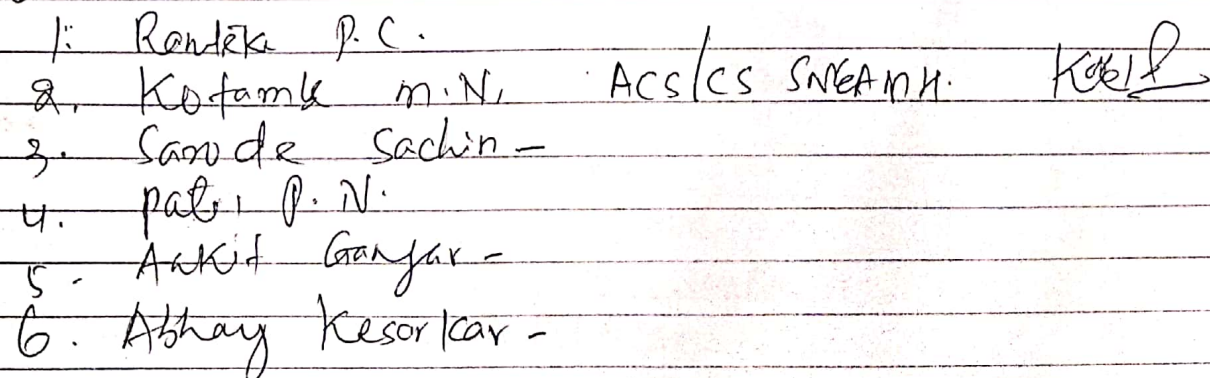 1: Randeke P.C.
2. Kotamle M.N. ACS/CS SNGAMH.
3. Sarode Sachin -
4. patri P.N.
5. Ankit Ganjar -
6. Abhay Kesorkar -